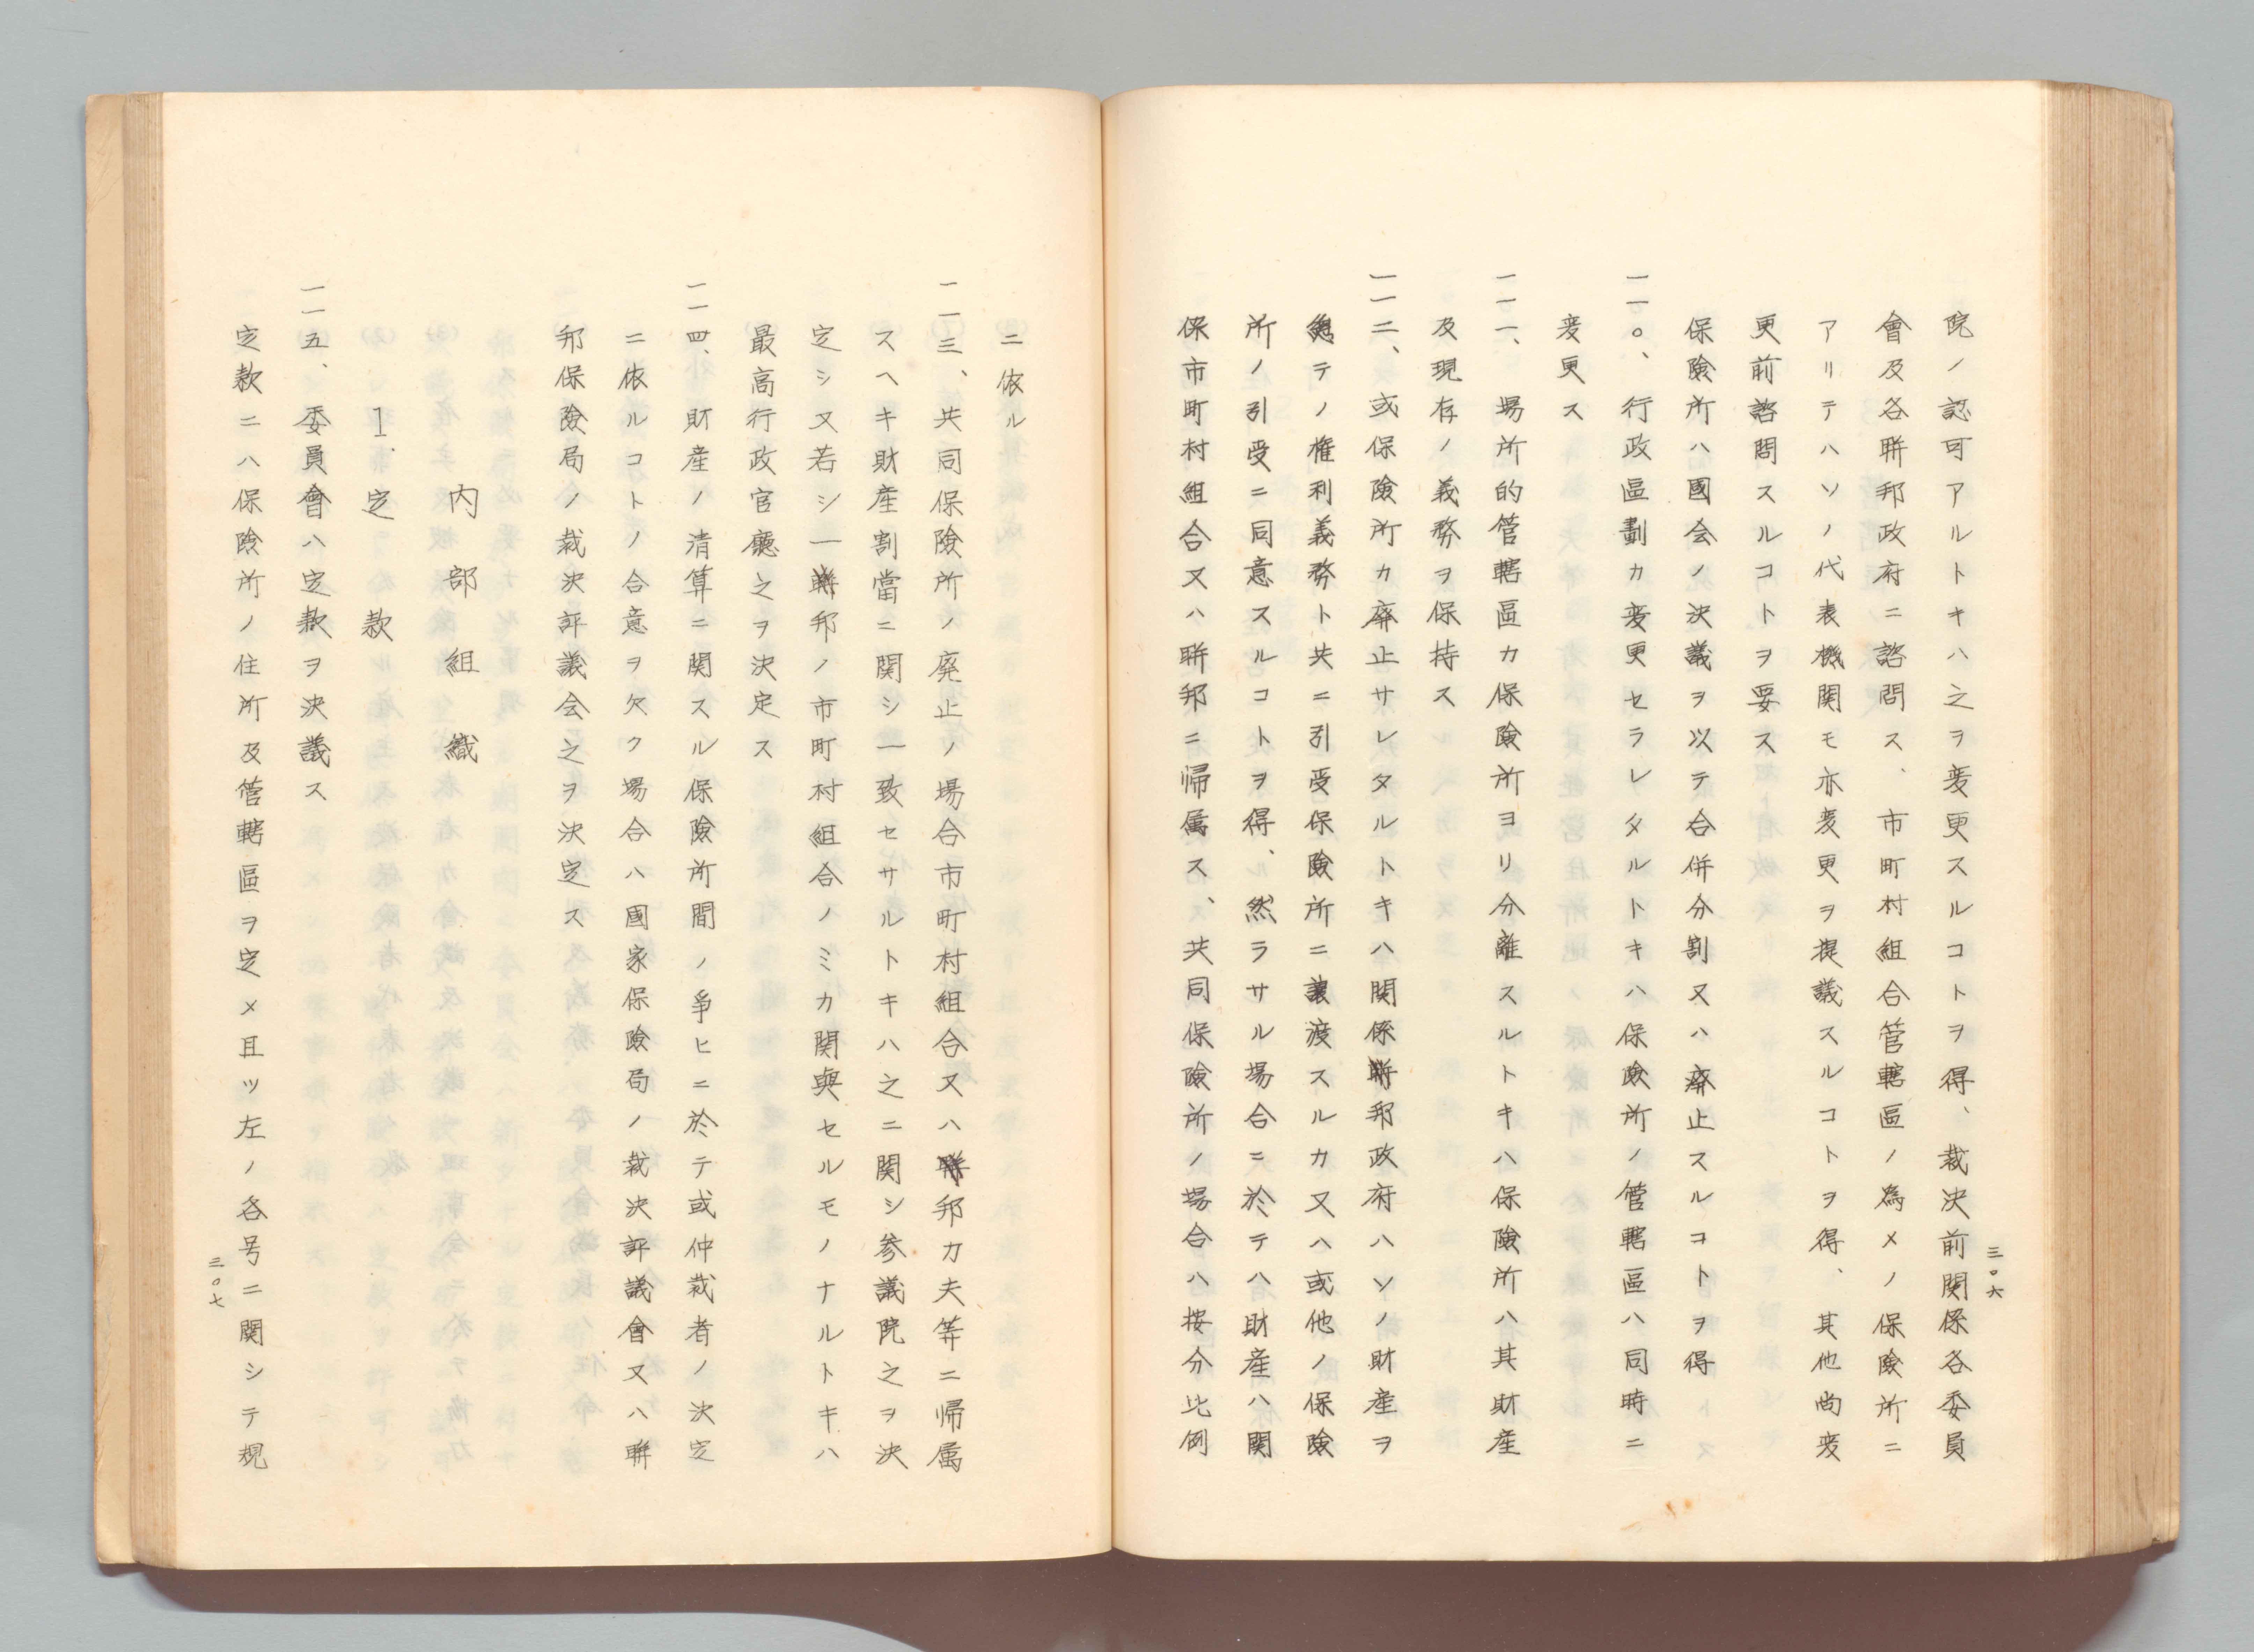 三〇六
院ノ認可アルトキハ之ヲ変更スルコトヲ得、裁決前関係各委員
會及各聯邦政府ニ諮問ス、市町村組合管轄區ノ為メノ保險所ニ
アリテハソノ代表機関モ亦変更ヲ提議スルコトヲ得、其他尚変
更前諮問スルコトヲ要ス
保險所ハ國会ノ決議ヲ以テ合併分割又ハ廃止スルコトヲ得
一一〇、行政區劃カ変更セラレタルトキハ保險所ノ管轄區ハ同時ニ
変更ス
一一一、場所的管轄區カ保險所ヨリ分離スルトキハ保險所ハ其財産
及現存ノ義務ヲ保持ス
一一二、或保險所カ廃止サレタルトキハ関係聯邦政府ハソノ財産ヲ
総テノ権利義務ト共ニ引受保險所ニ譲渡スルカ又ハ或他ノ保險
所ノ引受ニ同意スルコトヲ得、然ラサル場合ニ於テハ財産ハ関
係市町村組合又ハ聯邦ニ帰属ス、共同保險所ノ場合ハ按分比例
ニ依ル
一一三、共同保險所ノ廃止ノ場合市町村組合又ハ聯邦カ夫等ニ帰属
スヘキ財産割當ニ関シ一致セサルトキハ之ニ関シ参議院之ヲ決
定シ又若シ一聯邦ノ市町村組合ノミカ関與セルモノナルトキハ
最高行政官廳之ヲ決定ス
一一四、財産ノ清算ニ関スル保險所間ノ爭ヒニ於テ或仲裁者ノ決定
ニ依ルコトノ合意ヲ欠ク場合ハ國家保險局ノ裁決評議會又ハ聯
邦保險局ノ裁決評議会之ヲ決定ス
内部組織
1.定款
一一五、委員會ハ定款ヲ決議ス
定款ニハ保險所ノ住所及管轄區ヲ定メ且ツ左ノ各号ニ関シテ規
三〇七